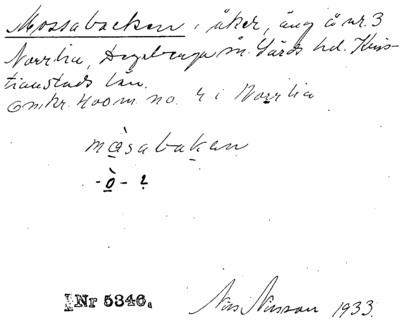 Mossabacken, åker, äng å nr. 3
Norrlia, Degeberga sn. Gärds hd. Kris-
tianstads län.
Omkr. 400 m no. 4 i Norrlia
mòsabakan
-ò- ?
Nr 5346.
Nils Nilsson 1933.